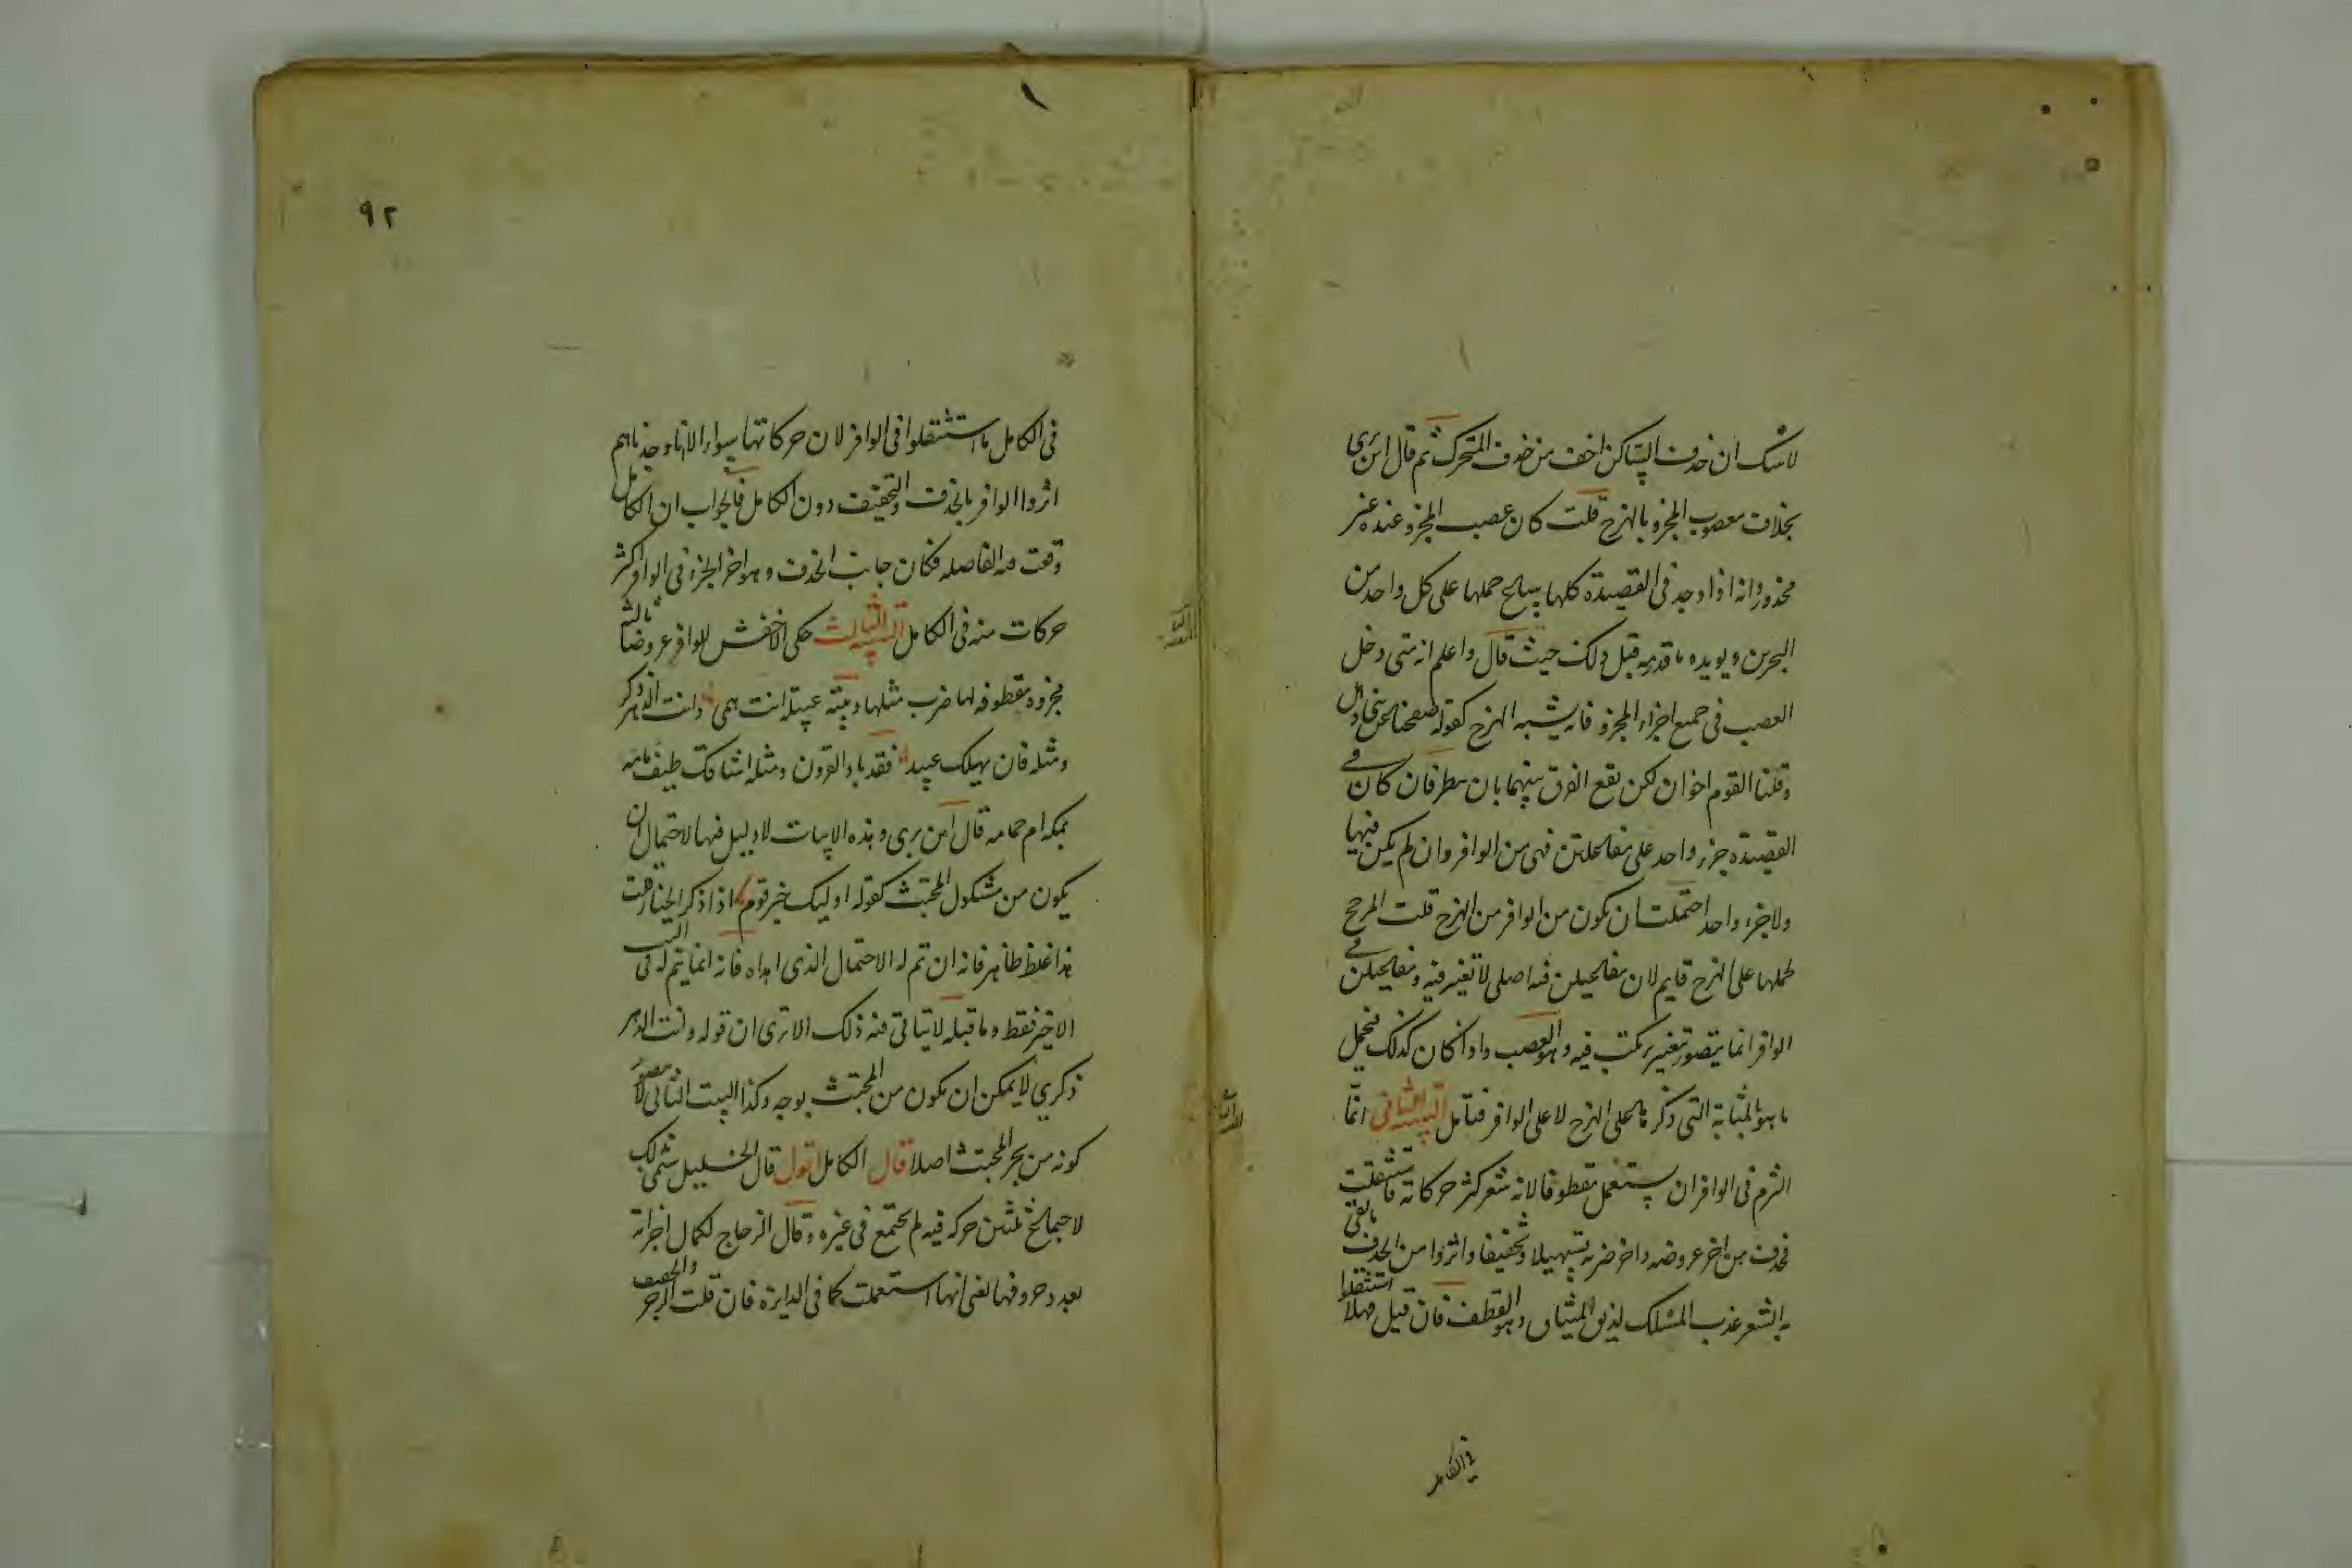 لاشك ان حذف الساكن اخف من حذف المتحرك ثم قال ابن بري
بخلاف معصوب المجزو بالهزج قلت كان عصب المجزو عنده غير
محذور وانه اذا وجد في القصيدة كلها يسايح حملها على كل واحد من
البحرين ويويده ما قدمه قبل ذلك حيث قال واعلم انه متى دخل
العصب في جميع اجزاء المجزو فانه يشبه الهزج كقوله صفحنا عن بني ذهل
وقلنا القوم اخوان لكن يقع الفرق بينهما بان ينظر فان كان في
القصيدة جزء واحد على مفاعلتن فهي من الوافر وان لم يكن فيها
ولا جزء واحد احتملت ان تكون من الوافر من الهزج قلت المرجح
لحملها على الهزج قايم لان مفاعيلن فيه اصلي لا تغيير فيه ومفاعيلن في
الوافر انما يتصور بتغيير يرتكب فيه وهو العصب واذا كان كذلك فيحمل
ما هو بالمثابة التي ذكرناها على الهزج لا على الوافر فتامل التنبيه الثاني انما
التزم في الوافر ان يستعمل مقطوفا لانه شعر كثر حركاته فاستثقلت
فحذف من اخر عروضه واخر ضربه تسهيلا وتخفيفا واثروا من الحذف ما بقي
به الشعر عذب المسلك لذيذ وهو القطف فان قيل فهلا استثقلوا
في الكامل
٩٢
في الكامل ما استثقلوا في الوافر لان حركاتها سواء الا انا وجدناهم
اثروا الوافر بالحذف والتخفيف دون الكامل فالجواب ان الكامل
وقعت فيه الفاصله فكان جانب الحذف وهو اخر الجزء في الوافر اكثر
حركات منه في الكامل التنبيه الثالث حكى الاخفش للوافر عروضا ثالثة
مجزوه مقطوفه لها ضرب مثلها وبيته عبيلة انت همي وانت الدهر ذكري
ومثله فان يهلك عبيد فقد باد القرون ومثله اشاقك طيف مامه
بمكه ام حمامه قال ابن بري وهذه الابيات لا دليل فيها لاحتمال ان
يكون من مشكول المجتث كقوله اوليك خير قوم اذا ذكر الخيار قلت
هذا غلط ظاهر فانه ان تم له الاحتمال الذي ابداه فانه انما يتم له في البيت
الاخير فقط وما قبله لا يتاتى فيه ذلك الا ترى ان قوله وانت الدهر
ذكري لا يمكن ان يكون من المجتث بوجه وكذا البيت الثاني لا يتصور
كونه من بحر المجتث اصلا قال الكامل اقول قال الخليل سمي بذلك
لاجتماع ثلثين حركه فيه لم يجتمع في غيره وقال الزجاج لكمال اجزائه
بعدد حروفها لفي انها استعملت كما في الدايرة فان قلت الرجز والخفيف